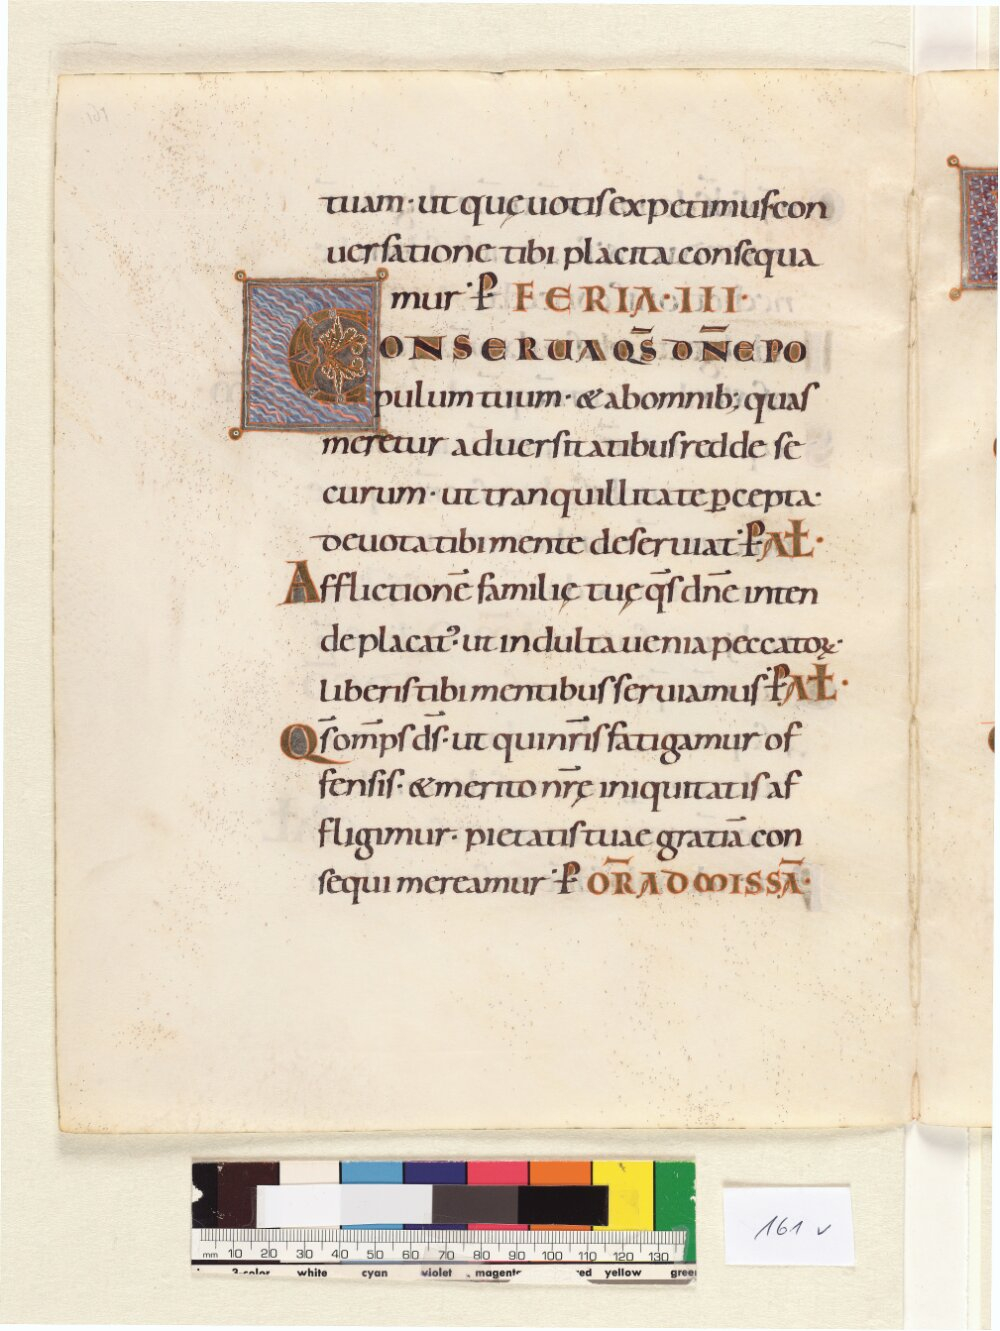 161
tuam· ut quę uotis expetimus con
uersatione tibi placita consequa
mur ·P̵ FERIA·III·
CONSERUA Q̄S DN̄E PO
pulum tuum· & ab omnib; quas
meretur aduersitatibus redde se
curum· ut tranquillitate ꝑcepta·
deuota tibi mente deseruiat ·P̵ AŁ·
Afflictionē familię tuę q̄s dn̄e inten
de placat᾽· ut indulta uenia peccatoꝝ·
liberis tibi mentibus seruiamus ·P̵ AŁ·
Q̄s om̄ps d̄s· ut qui nr̄is fatigamur of
fensis· & merito nr̄ę iniquitatis af
fligimur· pietatis tuae gratiā con
sequi mereamur ·P̵ OR̄ AD MISSĀ·
mm 10 20 30 40 50 60 70 80 90 100 110 120 130
3-color white cyan violet magenta red yellow green
161 v